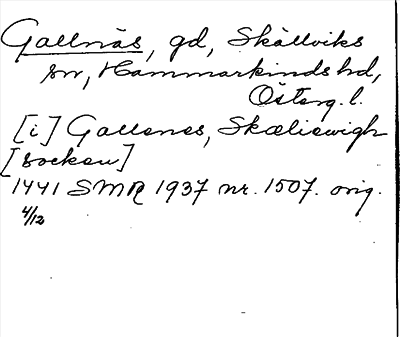 Gallnäs, gd, Skällviks
sn, Hammarkinds hd,
Österg. l.
[i] Gallenes, Skæliewigh
[socken]
1441 SMR 1937 nr. 1507. orig.
4/12